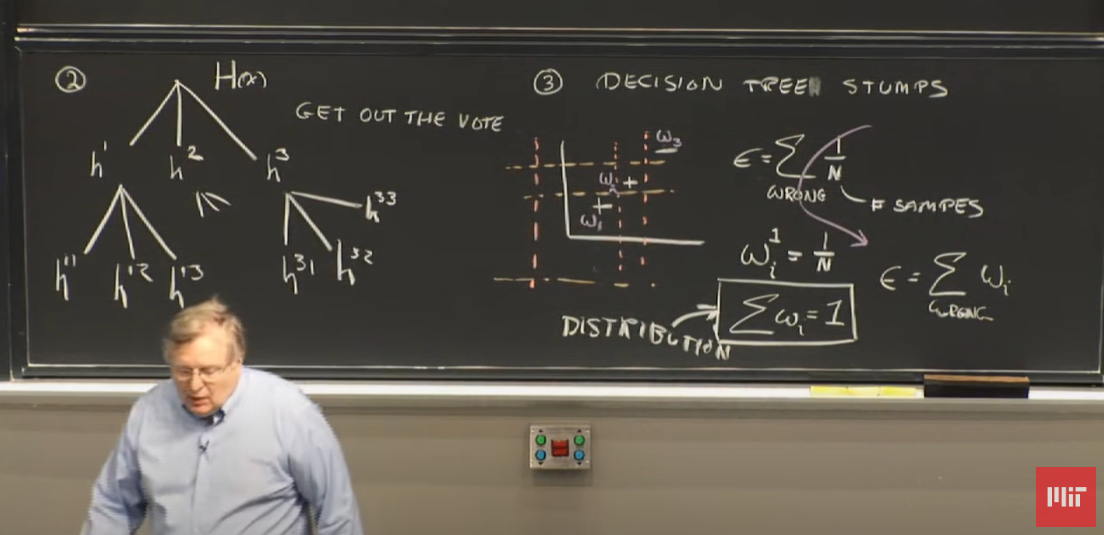 ② H(x)
GET OUT THE VOTE
h¹ h² h³
h¹¹ h¹² h¹³ h³¹ h³² h³³
③ DECISION TREE STUMPS
ω₃
ω₁
ϵ = ∑ 1/N
WRONG
# SAMPES
ω_i^1 = 1/N
∑ω_i = 1
DISTRIBUTION
ϵ = ∑ ω_i
WRONG
MIT